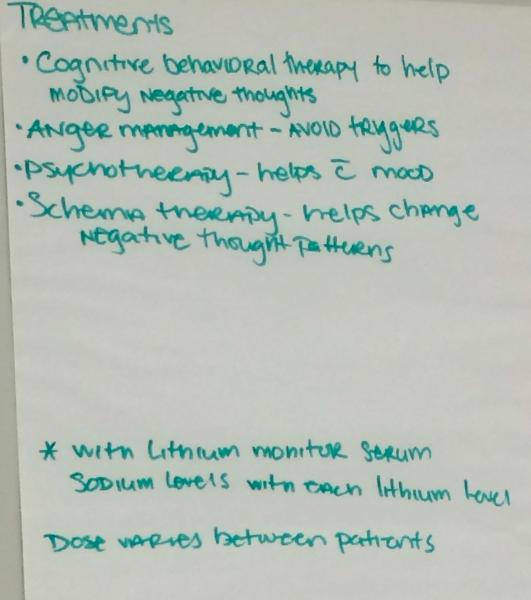 Treatments
• Cognitive behavioral therapy to help
modify negative thoughts
• Anger management - avoid tryggers
• Psychotherapy - helps c̄ mood
• Schema therapy - helps change
negative thought patterns
* with Lithium monitor serum
sodium levels with each lithium level
Dose varies between patients